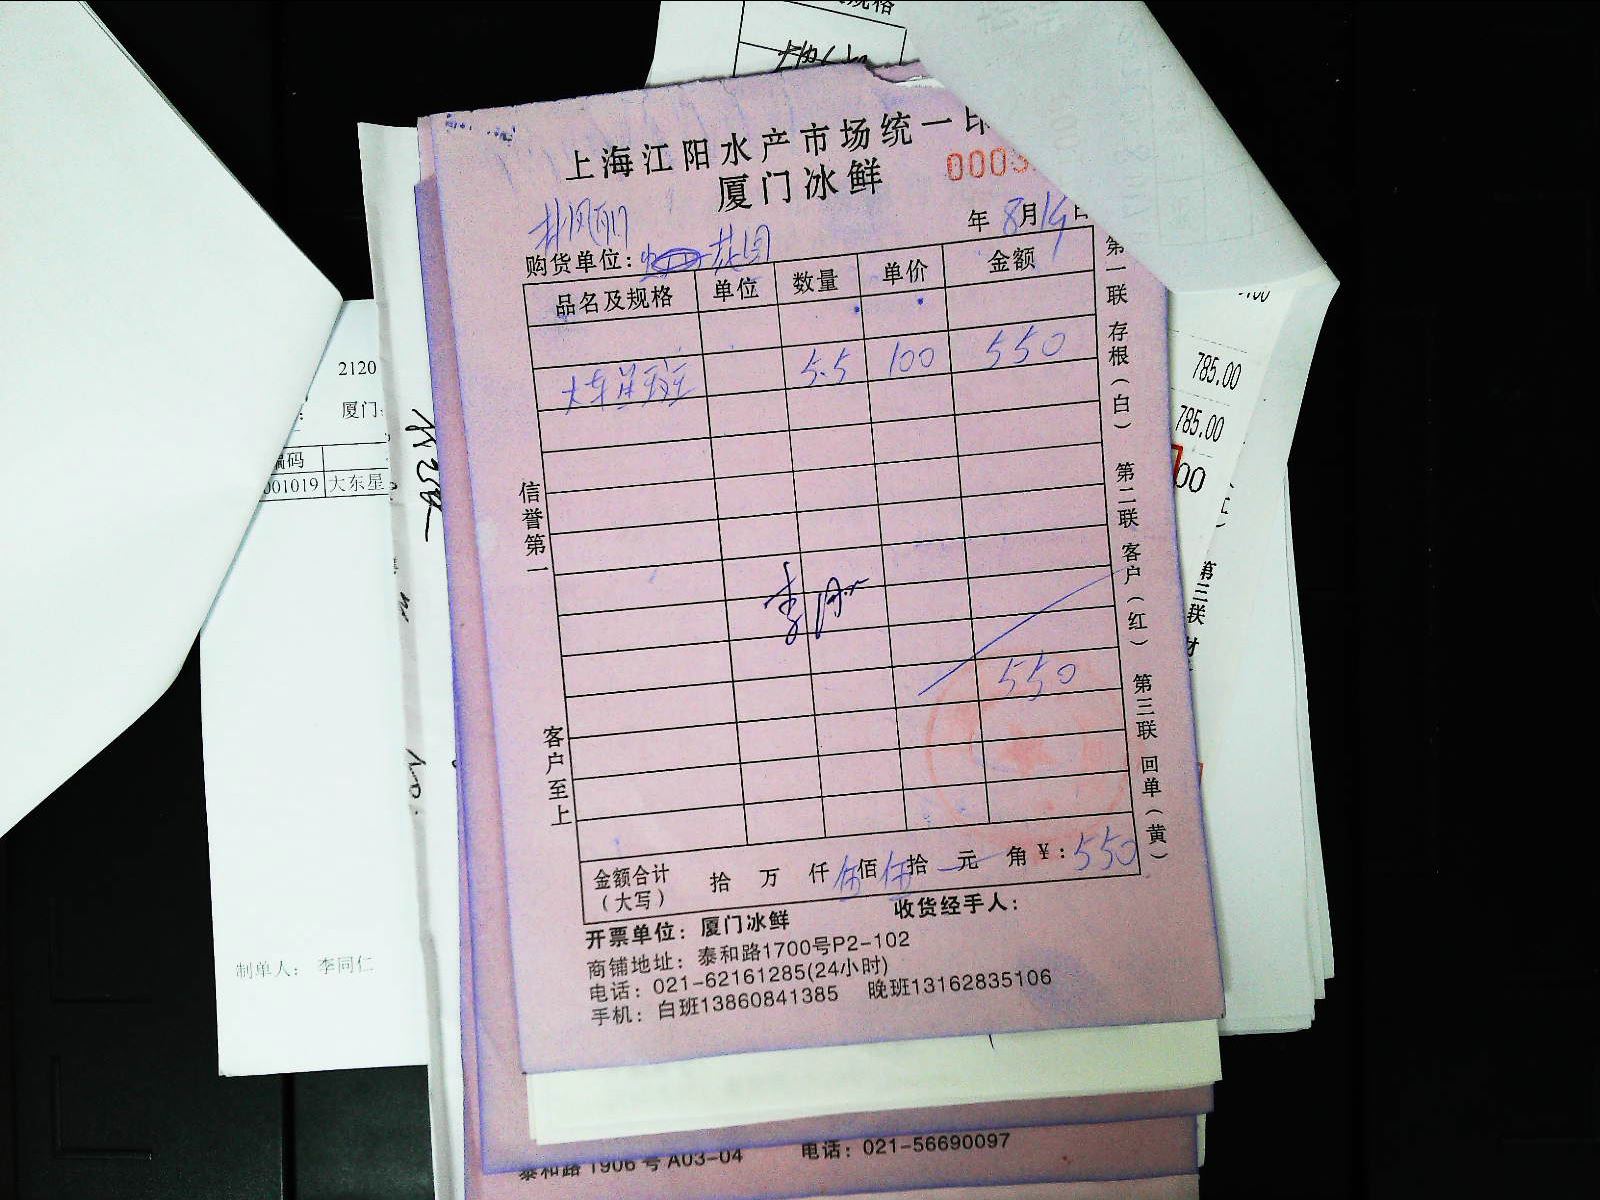 上海江阳水产市场统一印
厦门冰鲜
0003
年 8月14日
购货单位: 花园
品名及规格 单位 数量 单价 金额
大东星斑 5.5 100 550
550
金额合计(大写) 拾 万 仟 伍佰 伍拾 元 角 ¥: 550
开票单位: 厦门冰鲜 收货经手人:
商铺地址: 泰和路1700号P2-102
电话: 021-62161285(24小时)
手机: 白班13860841385 晚班13162835106
信誉第一
客户至上
第一联 存根(白) 第二联 客户(红) 第三联 回单(黄)
2120
厦门
编码
001019 大东星
制单人: 李同仁
785.00
785.00
00
第三联
泰和路1906号A03-04 电话: 021-56690097